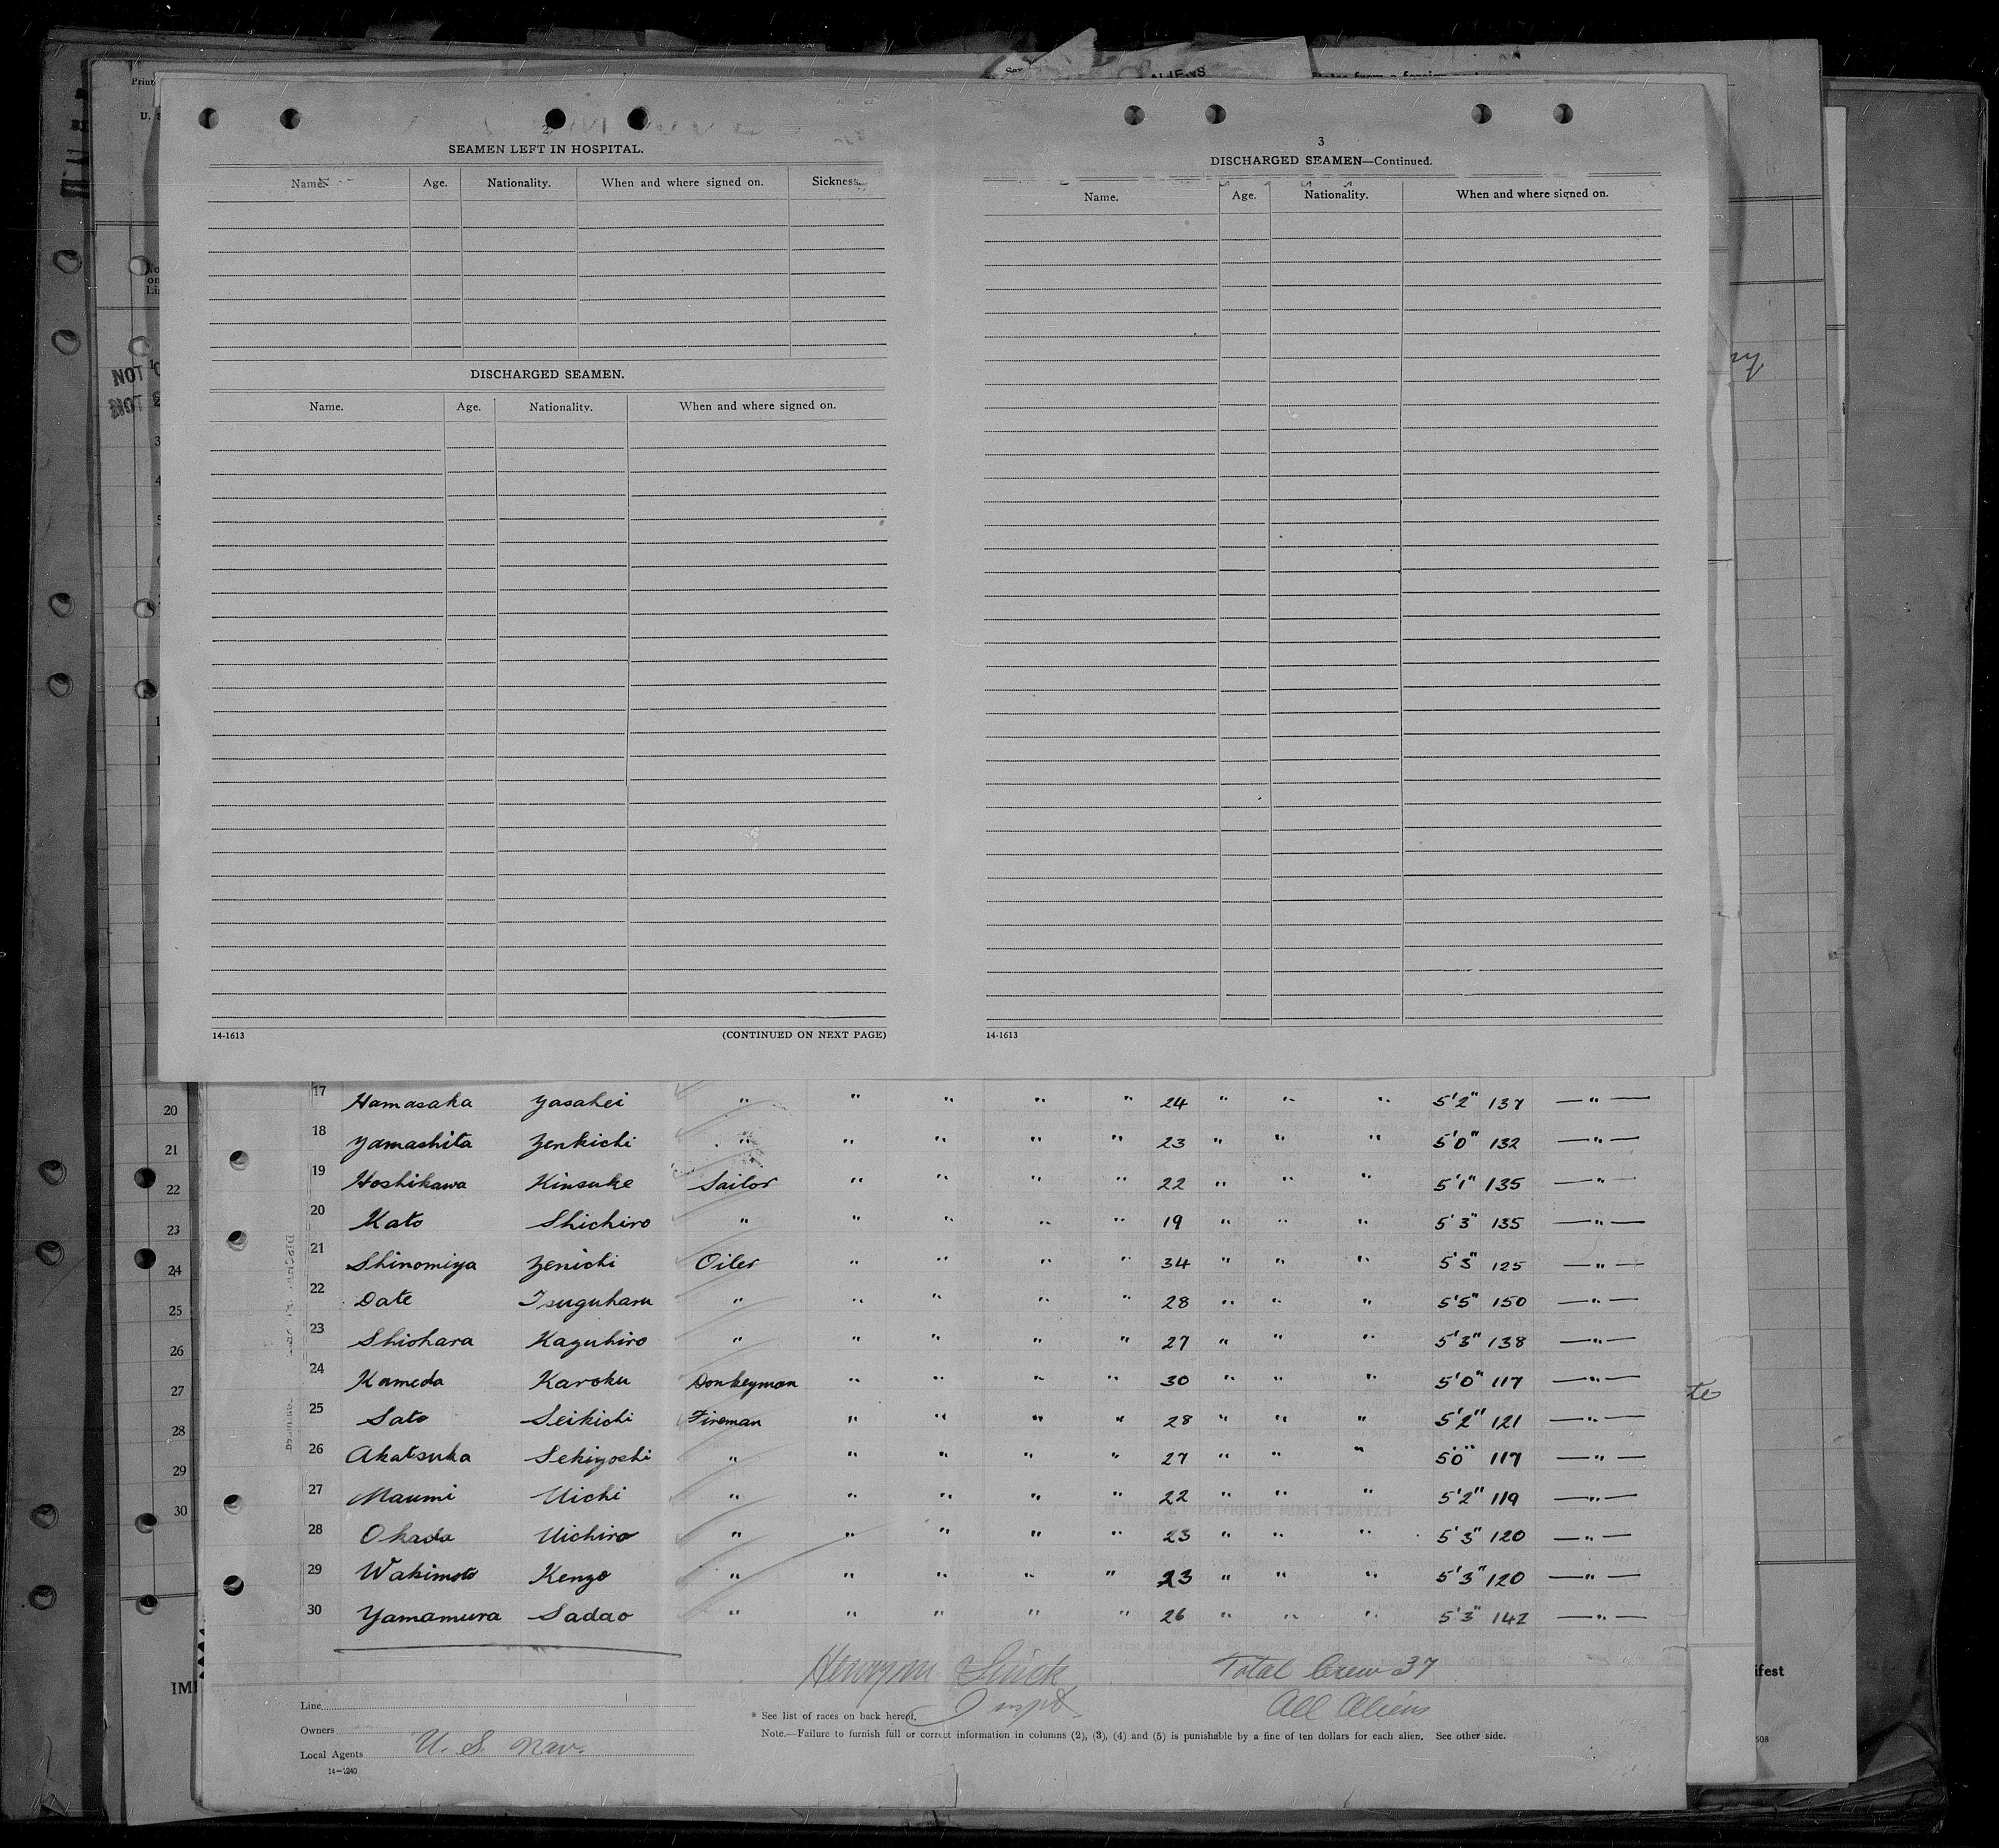 ALIENS
Print
U. S
2
SEAMEN LEFT IN HOSPITAL.
Name. Age. Nationality. When and where signed on. Sickness.
DISCHARGED SEAMEN.
Name. Age. Nationality. When and where signed on.
14-1613 (CONTINUED ON NEXT PAGE)
3
DISCHARGED SEAMEN—Continued.
Name. Age. Nationality. When and where signed on.
14-1613
NOT
20
21
22
23
24
25
26
27
28
29
30
17 Hamasaka Yasahei " " " " " 24 " " " 5'2" 137 —"—
18 Yamashita Zenkichi " " " " " 23 " " " 5'0" 132 —"—
19 Hoshikawa Kinsuke Sailor " " " " 22 " " " 5'1" 135 —"—
20 Kato Shichiro " " " " " 19 " " " 5'3" 135 —"—
21 Shinomiya Zenichi Oiler " " " " 34 " " " 5'3" 125 —"—
22 Date Tsuguharu " " " " " 28 " " " 5'5" 150 —"—
23 Shiohara Kazuhiro " " " " " 27 " " " 5'3" 138 —"—
24 Kameda Karoku Donkeyman " " " " 30 " " " 5'0" 117 —"—
25 Sato Seikichi Fireman " " " " 28 " " " 5'2" 121 —"—
26 Akatsuka Sekiyoshi " " " " " 27 " " " 5'0" 117 —"—
27 Maumi Uichi " " " " " 22 " " " 5'2" 119 —"—
28 Okada Uichiro " " " " " 23 " " " 5'3" 120 —"—
29 Wakimoto Kenzo " " " " " 23 " " " 5'3" 120 —"—
30 Yamamura Sadao " " " " " 26 " " " 5'3" 142 —"—
Total Crew 37
All Aliens
Inspt
Line
Owners
Local Agents U. S. Nav.
14-1240
* See list of races on back hereof.
Note.—Failure to furnish full or correct information in columns (2), (3), (4) and (5) is punishable by a fine of ten dollars for each alien. See other side.
ifest